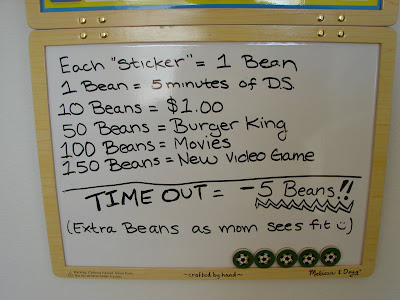 Each "Sticker" = 1 Bean
1 Bean = 5 minutes of D.S.
10 Beans = $1.00
50 Beans = Burger King
100 Beans = Movies
150 Beans = New Video Game
TIME OUT = -5 Beans!!
(Extra Beans as mom sees fit ☺)
~crafted by hand~
Melissa & Doug